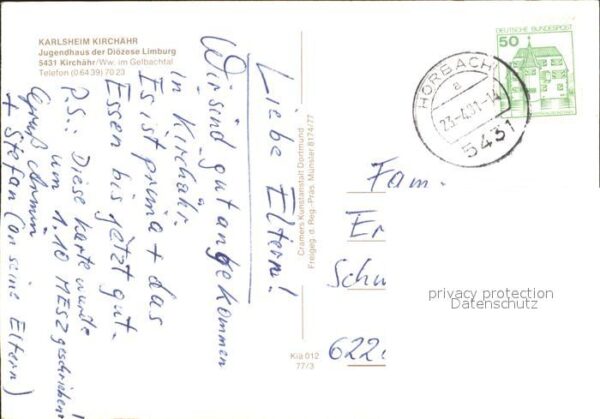 KARLSHEIM KIRCHÄHR
Jugendhaus der Diözese Limburg
5431 Kirchähr/Ww. im Gelbachtal
Telefon (0 64 39) 70 23
Liebe Eltern!
Wir sind gut angekommen
in Kirchähr.
Es ist prima + das
Essen bis jetzt gut.
P.S.: Diese Karte wurde
um 1.10 MESZ geschrieben!
Gruß Armin
+ Stefan (an seine Eltern)
Cramers Kunstanstalt Dortmund
Freigeg. d. Reg.-Präs. Münster 8174/77
Kia 012
77/3
DEUTSCHE BUNDESPOST
50
HORBACH
a
23-4.81-14
5431
Fam.
Er
Schw
622
privacy protection
Datenschutz